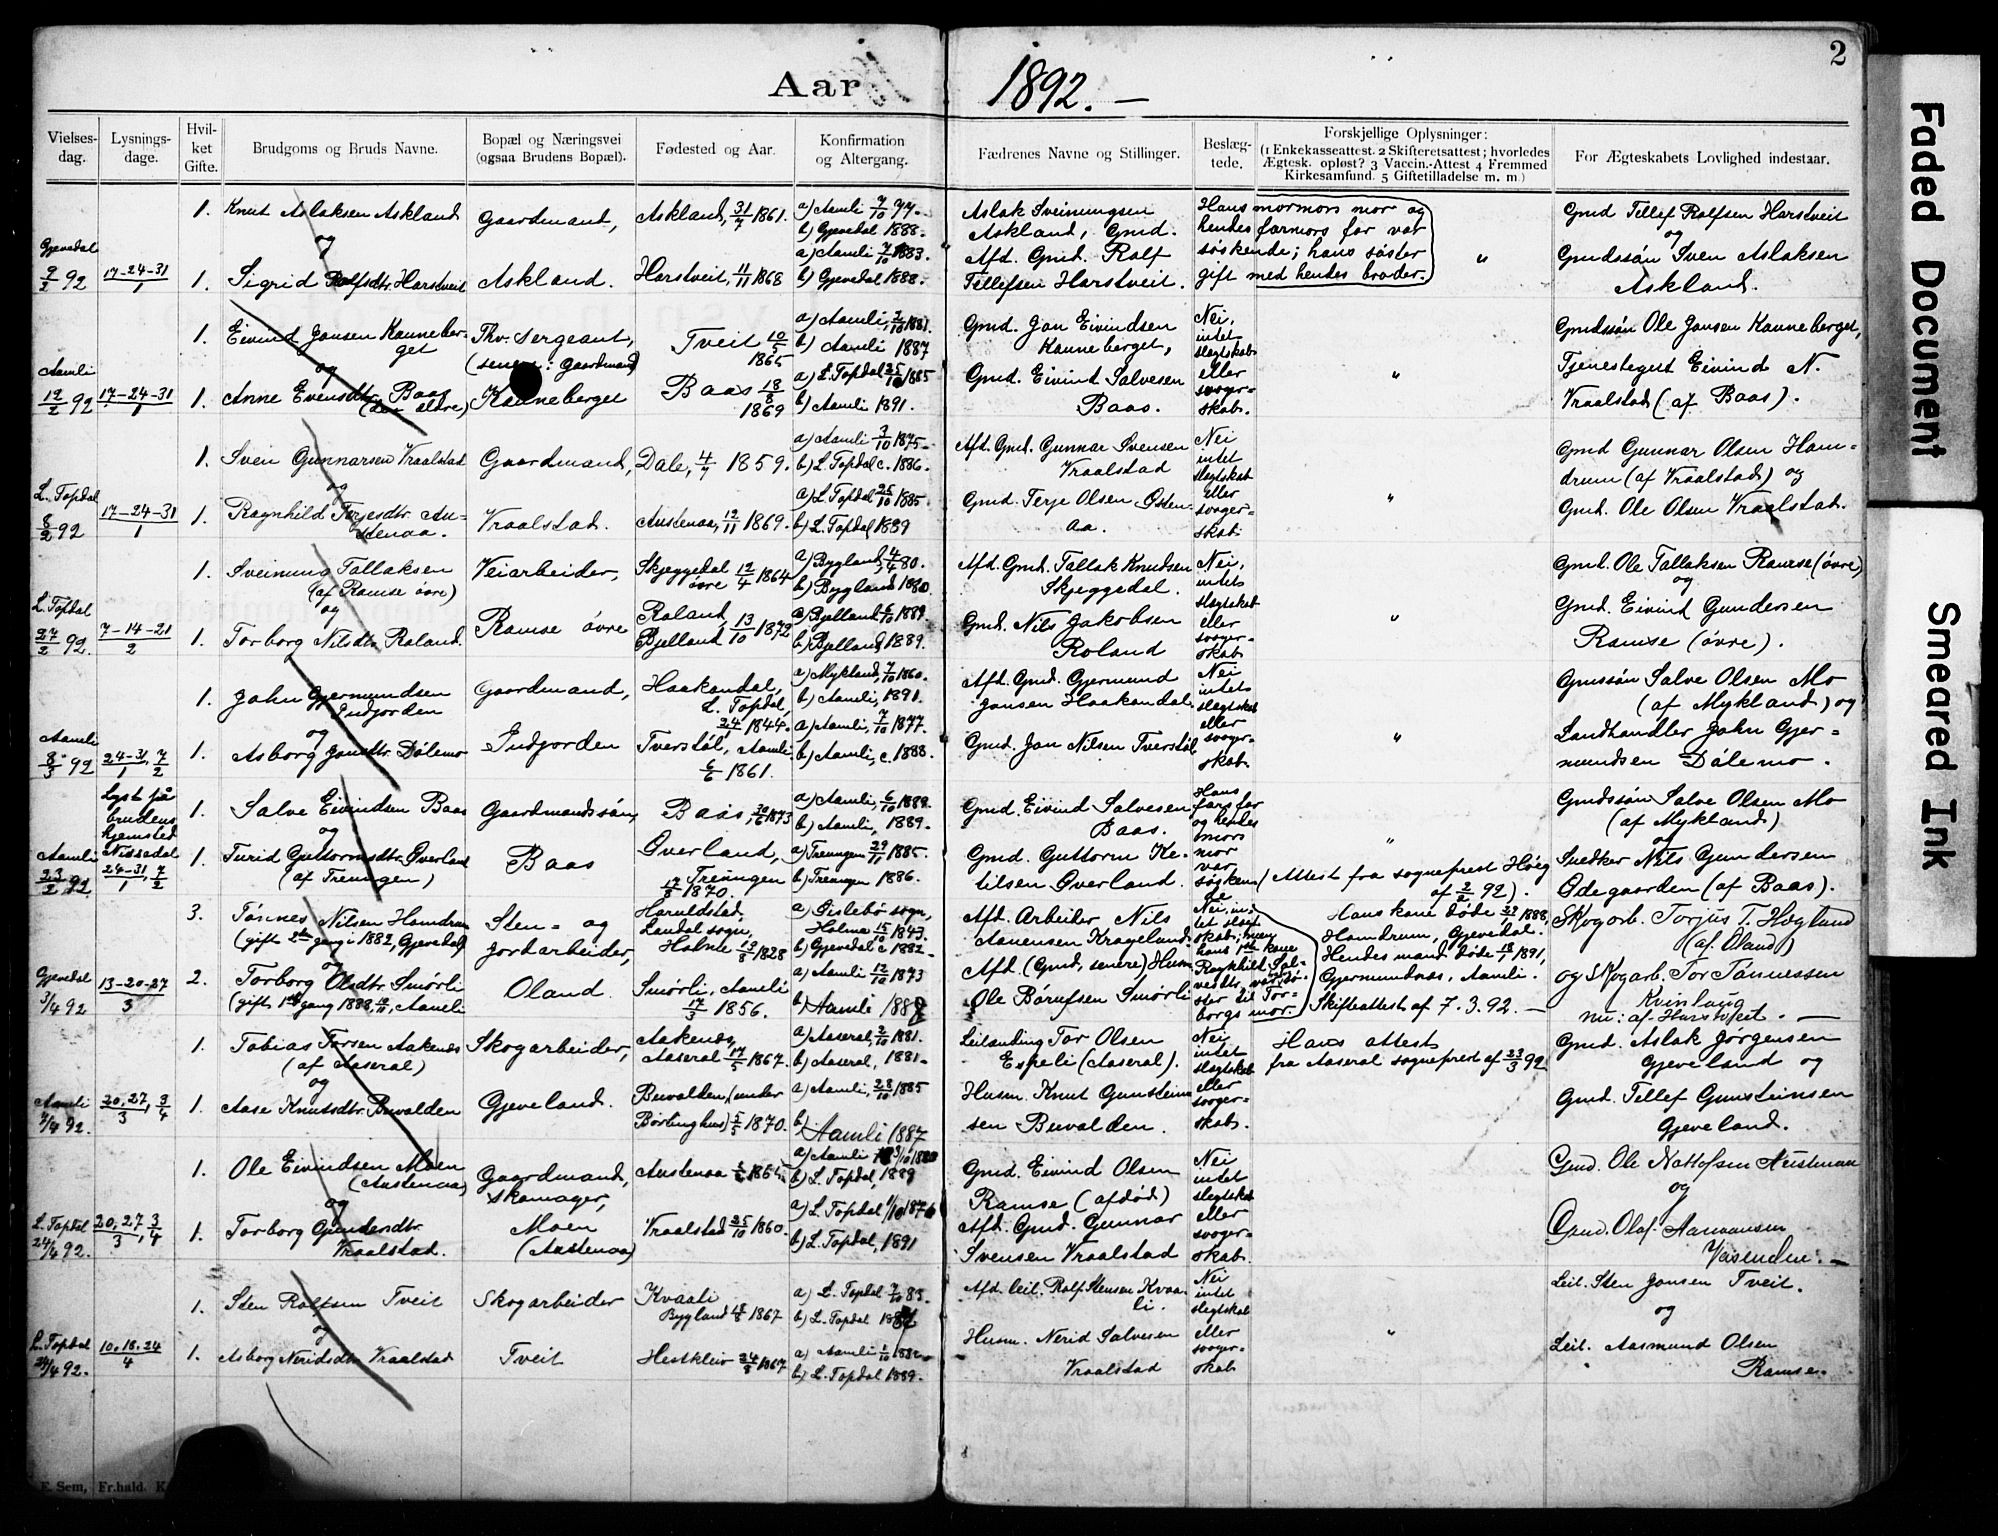 Aar 1892. —
2
Vielses-dag.
Lysnings-dage.
Hvil-ket Gifte.
Brudgoms og Bruds Navne.
Bopæl og Næringsvei (ogsaa Brudens Bopæl).
Fødested og Aar.
Konfirmation og Altergang.
Fædrenes Navne og Stillinger.
Beslæg-tede.
Forskjellige Oplysninger:
(1 Enkekasseattest. 2 Skifteretsattest; hvorledes
Ægtesk. opløst? 3 Vaccin.-Attest 4 Fremmed
Kirkesamfund. 5 Giftetilladelse m. m.)
For Ægteskabets Lovlighed indestaar.
1. Knut Aslaksen Askland Gaardmand, Askland, 31/7 1861. a) Aamli
og b) Gjevedal 1888.
Gjevedal a) Aamli 7/10 1883.
9/2 92 17-24-31/1 1. Sigrid Rolfsdtr. Harstveit Askland. Harstveit, 11/11 1868 b) Gjevedal 1888.
Aslak Sveinungsen
Askland, Gmd.
Afd. Gmd. Rolf
Tellefsen Harstveit.
Hans mormors mor og
hendes farmors far var
søskende; hans søster
gift med hendes broder.
"
Gmd Tellef Rolfsen Harstveit
og
Gmdssøn Sven Aslaksen
Askland.
1. Eivind Jonsen Kanneberget Thv. Sergeant, Tveit 10/5 1865 a) Aamli, 2/10 1881.
og (senere: Gaardmand) b) Aamli 1887
Aamli a) L. Topdal 25/10 1885
12/2 92 17-24-31/1 1. Anne Evensdtr. Baas (den ældre) Kanneberget Baas 18/8 1869 b) Aamli 1891.
Gmd. Jon Eivindsen
Kanneberget,
Gmd. Eivind Salvesen
Baas.
Nei,
intet
slegtskab
eller
svoger=
skab.
"
Gmdssøn Ole Jonsen Kanneberget,
Tjenestegut Eivind N.
Vraalstad (af Baas).
1. Sven Gunnarsen Vraalstad Gaardmand, Dale, 4/7 1859. a) Aamli 3/10 1875.
og b) L. Topdal c. 1886.
L. Topdal a) L. Topdal 25/10 1885.
8/2 92 17-24-31/1 1. Ragnhild Terjesdtr. Austenaa. Vraalstad. Austenaa, 12/11 1869. b) L. Topdal 1889
Afd. Gmd. Gunnar Svensen
Vraalstad
Gmd. Terje Olsen Østen-
aa.
Nei
intet
slegtskab
eller
svoger=
skab
"
Gmd Gunnar Olsen Ham=
drum (af Vraalstad) og
Gmd. Ole Olsen Vraalstad.
1. Sveinung Tallaksen Veiarbeider, Skjeggedal øvre 12/4 1864 a) Bygland, 4/4 80.
(af Ramse øvre) b) Bygland 1880.
L. Topdal og a) Bjelland 6/10 1889.
27/2 92. 7-14-21/2 1. Torborg Nilsdtr. Roland. Ramse øvre Roland, Bjelland 13/10 1872 b) Bjelland 1889.
Afd. Gmd. Tallak Knudsen
Skjeggedal.
Gmd. Nils Jakobsen
Roland
Nei,
intet
slegtskab
eller
svoger=
skab
"
Gmd. Ole Tallaksen Ramse (øvre)
og
Gmd. Eivind Gundersen
Ramse (øvre).
1. John Gjermundsen Indjorden Gaardmand, Haakondal, L. Topdal, 24/1 1844. a) Mykland, 7/10 1860.
b) Aamli, 1891.
Aamli og a) Aamli, 7/10 1877.
8/3 92 24-31/1, 7/2 1. Asborg Jonsdtr. Dølemo Indjorden Tverstøl, Aamli 6/6 1861. b) Aamli, c. 1888.
Afd. Gmd. Gjermund
Jonsen Haakendal.
Gmd. Jon Nilsen Tverstøl
Nei
intet
slegtskab
eller
svoger=
skab.
"
Gmdssøn Salve Olsen Mo
(af Mykland) og
Landhandler John Gjer=
mundsen Dølemo.
Lyst på
brudens
hjemsted
Nissedal
24-31/1, 7/2
1. Salve Eivindsen Baas Gaardmandssøn, Baas, 30/6 1873 a) Aamli, 6/10 1889.
og b) Aamli, 1889.
Aamli
23/2 92 1. Turid Guttormsdtr. Øverland (af Treungen) Baas Øverland, Treungen 17/8 1870. a) Treungen 29/11 1885.
b) Treungen 1886.
Gmd. Eivind Salvesen
Baas.
Gmd. Guttorm Ke-
tilsen Øverland.
Hans
fars far
og hendes
mors
mor
var
søsken
de
"
(Attest fra sogneprest Høeg
af 2/2 92).
Gmdssøn Salve Olsen Mo
(af Mykland)
og
Snedker Nils Gundersen
Ødegaarden (af Baas).
3. Tønnes Nilsen Hamdrum Sten- og Jordarbeider, Haruldstad, Landal sogn, Holme 13/8 1828 a) Øislebø sogn, Holme 15/10 1843.
(gift 2den gang i 1882, Gjevedal) b) Gjevedal c 1882.
Gjevedal og
3/4 92 13-20-27/3 2. Torborg Olsdtr. Smørli Oland. Smørli, Aamli 17/3 1856. a) Aamli 12/10 1873
(gift 1ste gang 1888, Aamli b) Aamli 188
Afd. Arbeider Nils
Aanensen Krageland.
Afd. (Gmd, senere) Husm
Ole Børufsen Smørli
Nei, in-
tet slegt
skab; men
hans 1ste kone
Ragnhild Sal-
vesdtr. var sø-
ster til Tor-
borgs mor.
Hans kone døde 1888,
Hamdrum, Gjevedal.
Hendes mand døde 18/1 1891,
Gjermundnes, Aamli.
Skifteattest af 7.3.92. —
Skogarb. Torjus T. Høgland
(af Oland)
og Skogarb. Tor Tønnessen
Kvinlaug
nu: af Harstveit. —
1. Tobias Torsen Aakenes Skogarbeider, Aakenes, Aaseral 17/5 1867. a) Aaseral, 2/10 1881.
(af Aaseral) b) Aaseral, 1881.
Aamli og a) Aamli, 28/10 1885
7/4 92. 20, 27/3, 3/4 1. Aase Knutsdtr. Buvalden Gjeveland. Buvalden, (under Børtinghus) 5/5 1870. b) Aamli 1887
Leilending Tor Olsen
Espeli (Aaseral).
Husm. Knut Gunstein-
sen Buvalden.
Nei
intet
slegtskab
eller
svoger=
skab.
Hans attest
fra Aaseral sogneprest af 23/3 92
Gmd. Aslak Jørgensen
Gjeveland og
Gmd. Tellef Gunsteinsen
Gjeveland.
1. Ole Eivindsen Moen (Austenaa) Gaardmand, skomager, Austenaa a) Aamli
og b) L. Topdal, 1889
L. Topdal a) L. Topdal
24/4 92. 20, 27/3, 3/4 1. Torborg Gundersdtr. Vraalstad. Moen (Austenaa) Vraalstad 25/10 1860. b) L. Topdal, 1891
Gmd. Eivind Olsen
Ramse (afdød)
Afd. Gmd. Gunnar
Svensen Vraalstad
Nei
intet
slegtskab
eller
svoger=
skab.
Gmd. Ole Nattofsen
og
Gmd. Olaf
1. Sten Rolfsen Tveit Skogarbeider Kvaali Bygland 1867 a) L. Topdal 7/10 83.
og b) L. Topdal
L. Topdal
24/4 92. 10.18.24/4 1. Asborg Neridsdtr. Vraalstad Tveit Hestkleiv 24/3 1867 a) Aamli
b) L. Topdal 1889.
Afd. Leil. Rolf Stensen Kvaa-
li.
Husm. Nerid Salvesen
Vraalstad
Nei
intet
slegtskab
eller
svoger=
skab
"
Leil. Sten Jonsen Tveit.
og
Leil. Aasmund Olsen
Ramse.
F. Sem, Fr.hald.
Faded Document
Smeared Ink